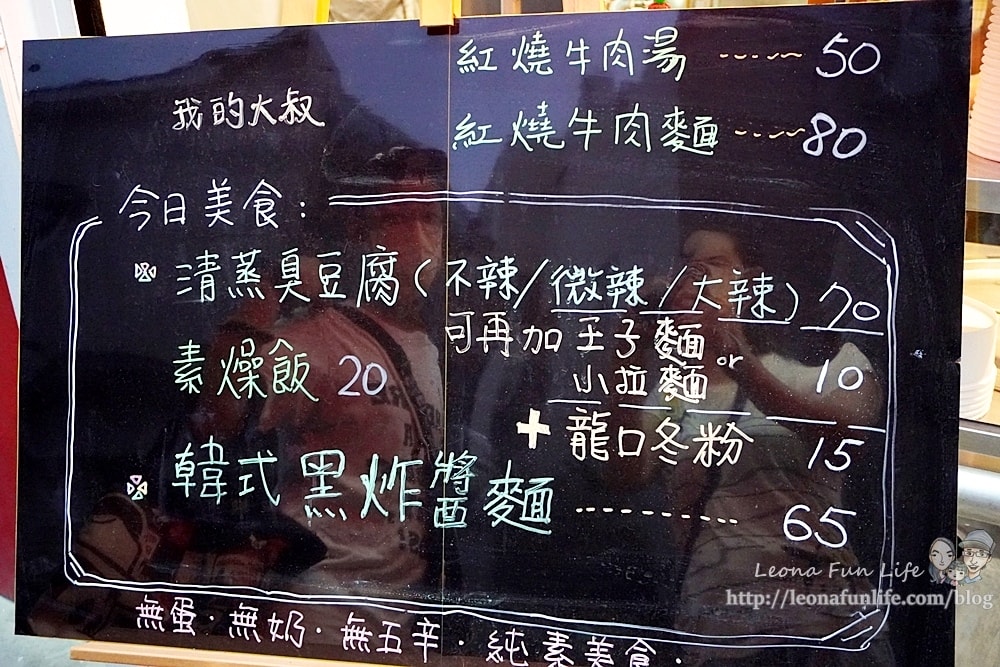 紅燒牛肉湯 ----- 50
我的大叔
紅燒牛肉麵 ----- 80
今日美食：
※ 清蒸臭豆腐(不辣/微辣/大辣) 70
可再加 王子麵 or
小拉麵 10
素燥飯 20
+ 龍口冬粉 15
※ 韓式黑炸醬麵 ----------- 65
無蛋·無奶·無五辛·純素美食·
Leona Fun Life
http://leonafunlife.com/blog